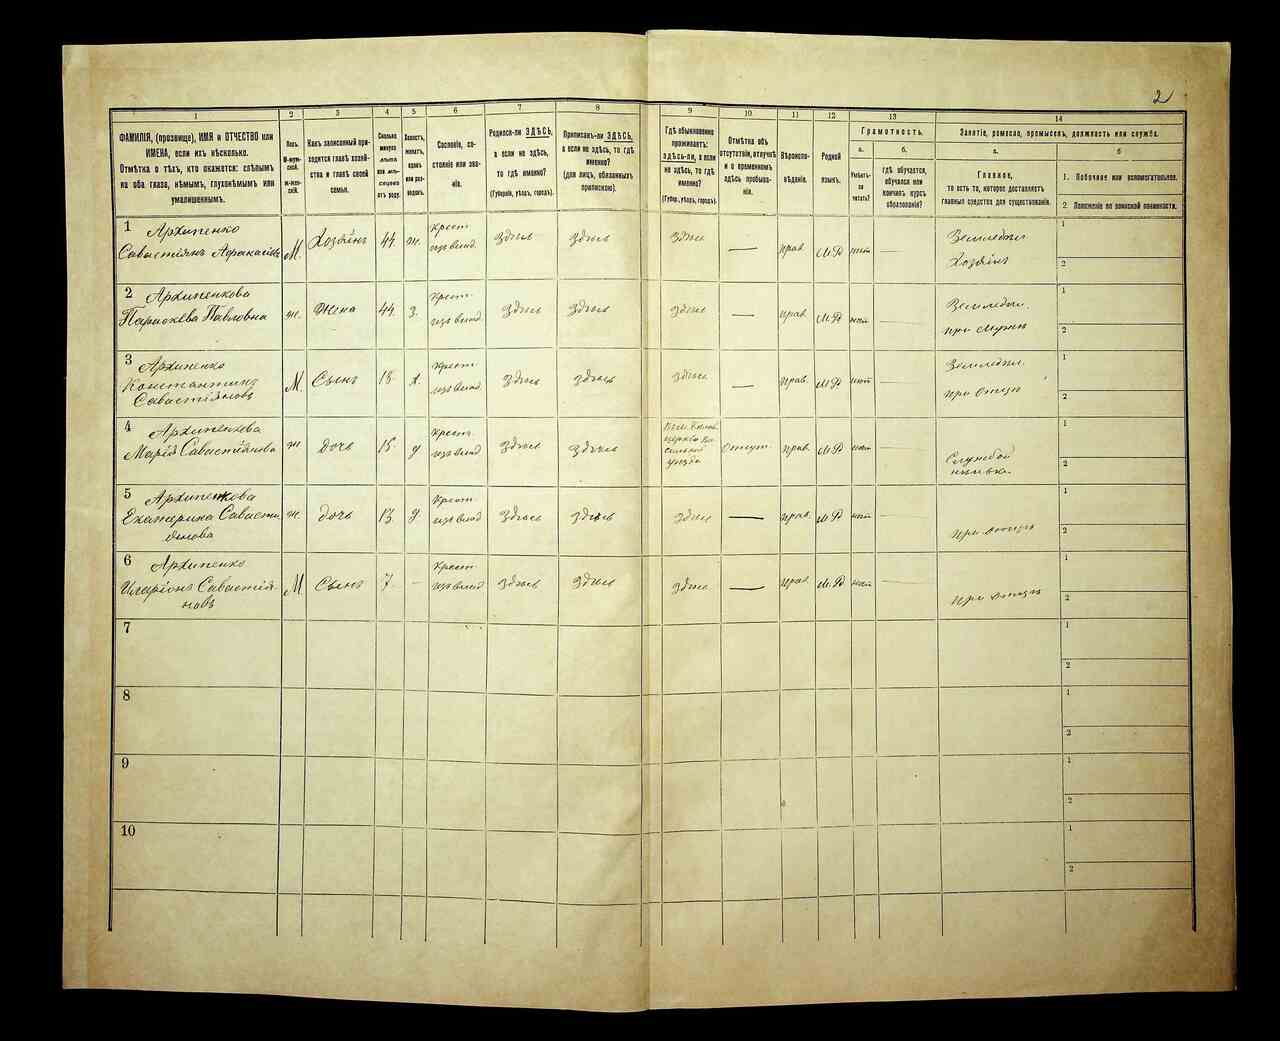 2
1
2
3
4
5
6
7
8
9
10
11
12
13
14
ФАМИЛІЯ, (прозвище), ИМЯ и ОТЧЕСТВО или
ИМЕНА, если ихъ нѣсколько.
Отмѣтка о тѣхъ, кто окажется: слѣпымъ
на оба глаза, нѣмымъ, глухонѣмымъ или
умалишеннымъ.
Полъ.
М-муж-
ской.
ж-жен-
скій.
Какъ записанный при-
ходится главѣ хозяй-
ства и главѣ своей
семьи.
Сколько
минуло
лѣтъ
или мѣ-
сяцевъ
отъ роду.
Холостъ,
женатъ,
вдовъ
или раз-
веденъ.
Сословіе, со-
стояніе или зва-
ніе.
Родился-ли ЗДѢСЬ,
а если не здѣсь,
то гдѣ именно?
(Губернія, уѣздъ, городъ).
Приписанъ-ли ЗДѢСЬ,
а если не здѣсь, то гдѣ
именно?
(для лицъ, обязанныхъ
припискою).
Гдѣ обыкновенно
проживаетъ:
ЗДѢСЬ-ли, а если
не здѣсь, то гдѣ
именно?
(Губер., уѣздъ, городъ).
Отмѣтка объ
отсутствіи, отлучкѣ
и о временномъ
здѣсь пребыва-
ніи.
Вѣроиспо-
вѣданіе.
Родной
языкъ.
Грамотность.
а.
Умѣетъ-
ли
читать?
б.
гдѣ обучается,
обучался или
кончилъ курсъ
образованія?
Занятіе, ремесло, промыселъ, должность или служба.
а.
Главное,
то есть то, которое доставляетъ
главныя средства для существованія.
б
1. Побочное или вспомогательное.
2. Положеніе по воинской повинности.
1 Архипенко
Савастіянъ
М. Хозяинъ 44. ж. Крест.
изъ влад. Здѣсь Здѣсь Здѣсь — прав. М.Р нѣт
Земледѣл.
Хозяинъ
1
2
2 Архипенкова
Параскева Павловна
ж. Жена 44. З. Крест.
изъ влад. Здѣсь Здѣсь Здѣсь — прав. М.Р нѣт
Земледѣл.
при мужѣ
1
2
3 Архипенко
Константинъ
Савастіяновъ
М. Сынъ 18. х. Крест.
изъ влад. Здѣсь Здѣсь Здѣсь — прав. М.Р нѣт
Земледѣл.
при отцѣ
1
2
4 Архипенкова
Марія Савастіянова
ж. Дочь 15. д Крест.
изъ влад Здѣсь Здѣсь
уѣзда
Отсут. прав. М.Р нѣт
Службой
нянька.
1
2
5 Архипенкова
Екатерина Савасті
янова
ж. дочь 13. д Крест.
изъ влад Здѣсь Здѣсь Здѣсь — прав. М.Р нѣт
при отцѣ
1
2
6 Архипенко
Иларіонъ Савастія-
новъ
М Сынъ 7. — Крест.
изъ влад Здѣсь Здѣсь Здѣсь — прав. М.Р нѣт
при отцѣ
1
2
7
1
2
8
1
2
9
1
2
10
1
2